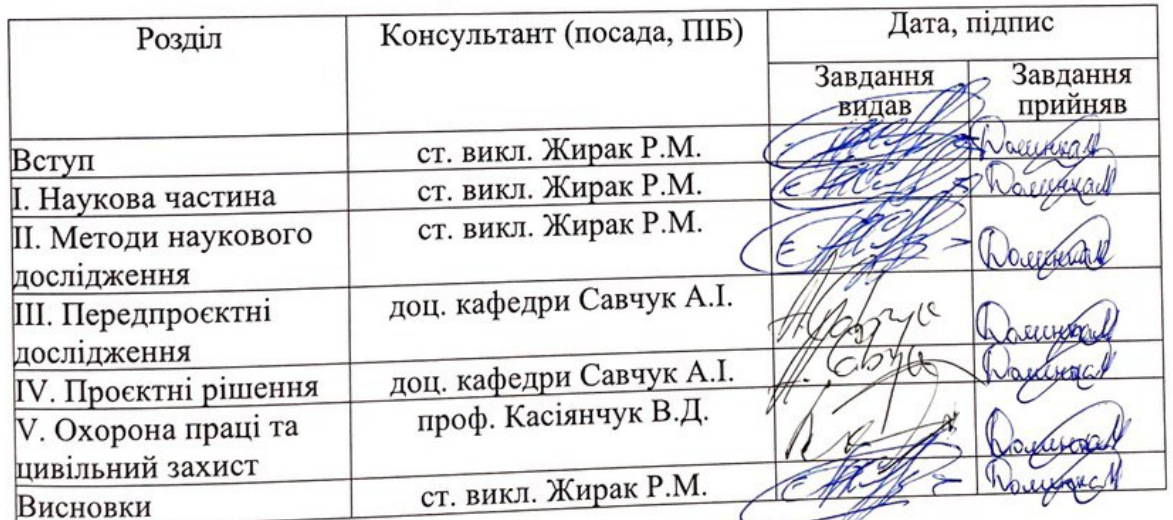 Розділ
Консультант (посада, ПІБ)
Дата, підпис
Завдання
видав
Завдання
прийняв
Вступ
ст. викл. Жирак Р.М.
I. Наукова частина
ст. викл. Жирак Р.М.
II. Методи наукового
дослідження
ст. викл. Жирак Р.М.
III. Передпроєктні
дослідження
доц. кафедри Савчук А.І.
IV. Проєктні рішення
доц. кафедри Савчук А.І.
V. Охорона праці та
цивільний захист
проф. Касіянчук В.Д.
Висновки
ст. викл. Жирак Р.М.